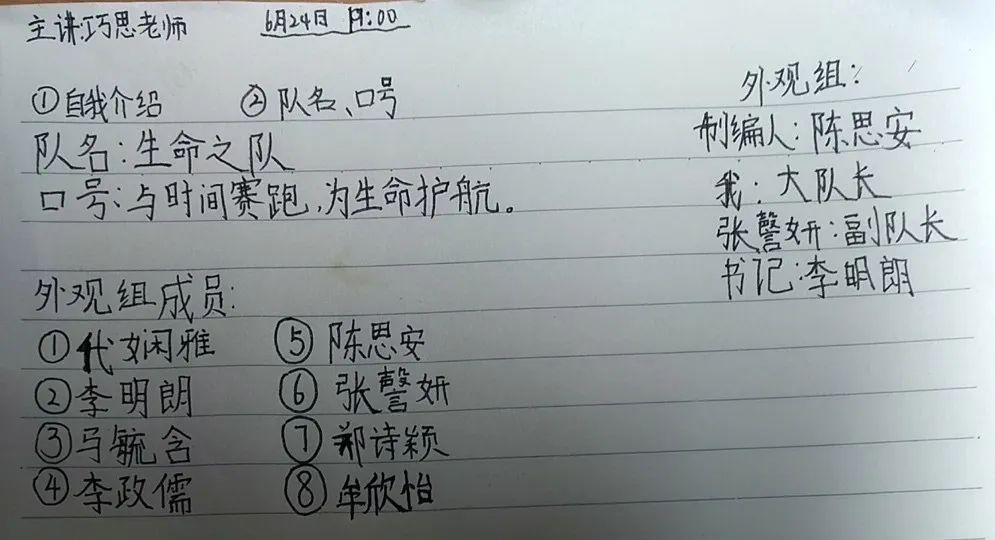 主讲:巧思老师
6月24日 19:00
①自我介绍 ②队名、口号
队名:生命之队
口号:与时间赛跑,为生命护航。
外观组成员:
①代娴雅 ⑤陈思安
②李明朗 ⑥张謦妍
③马毓含 ⑦郑诗颖
④李政儒 ⑧牟欣怡
外观组:
制编人:陈思安
我:大队长
张謦妍:副队长
书记:李明朗